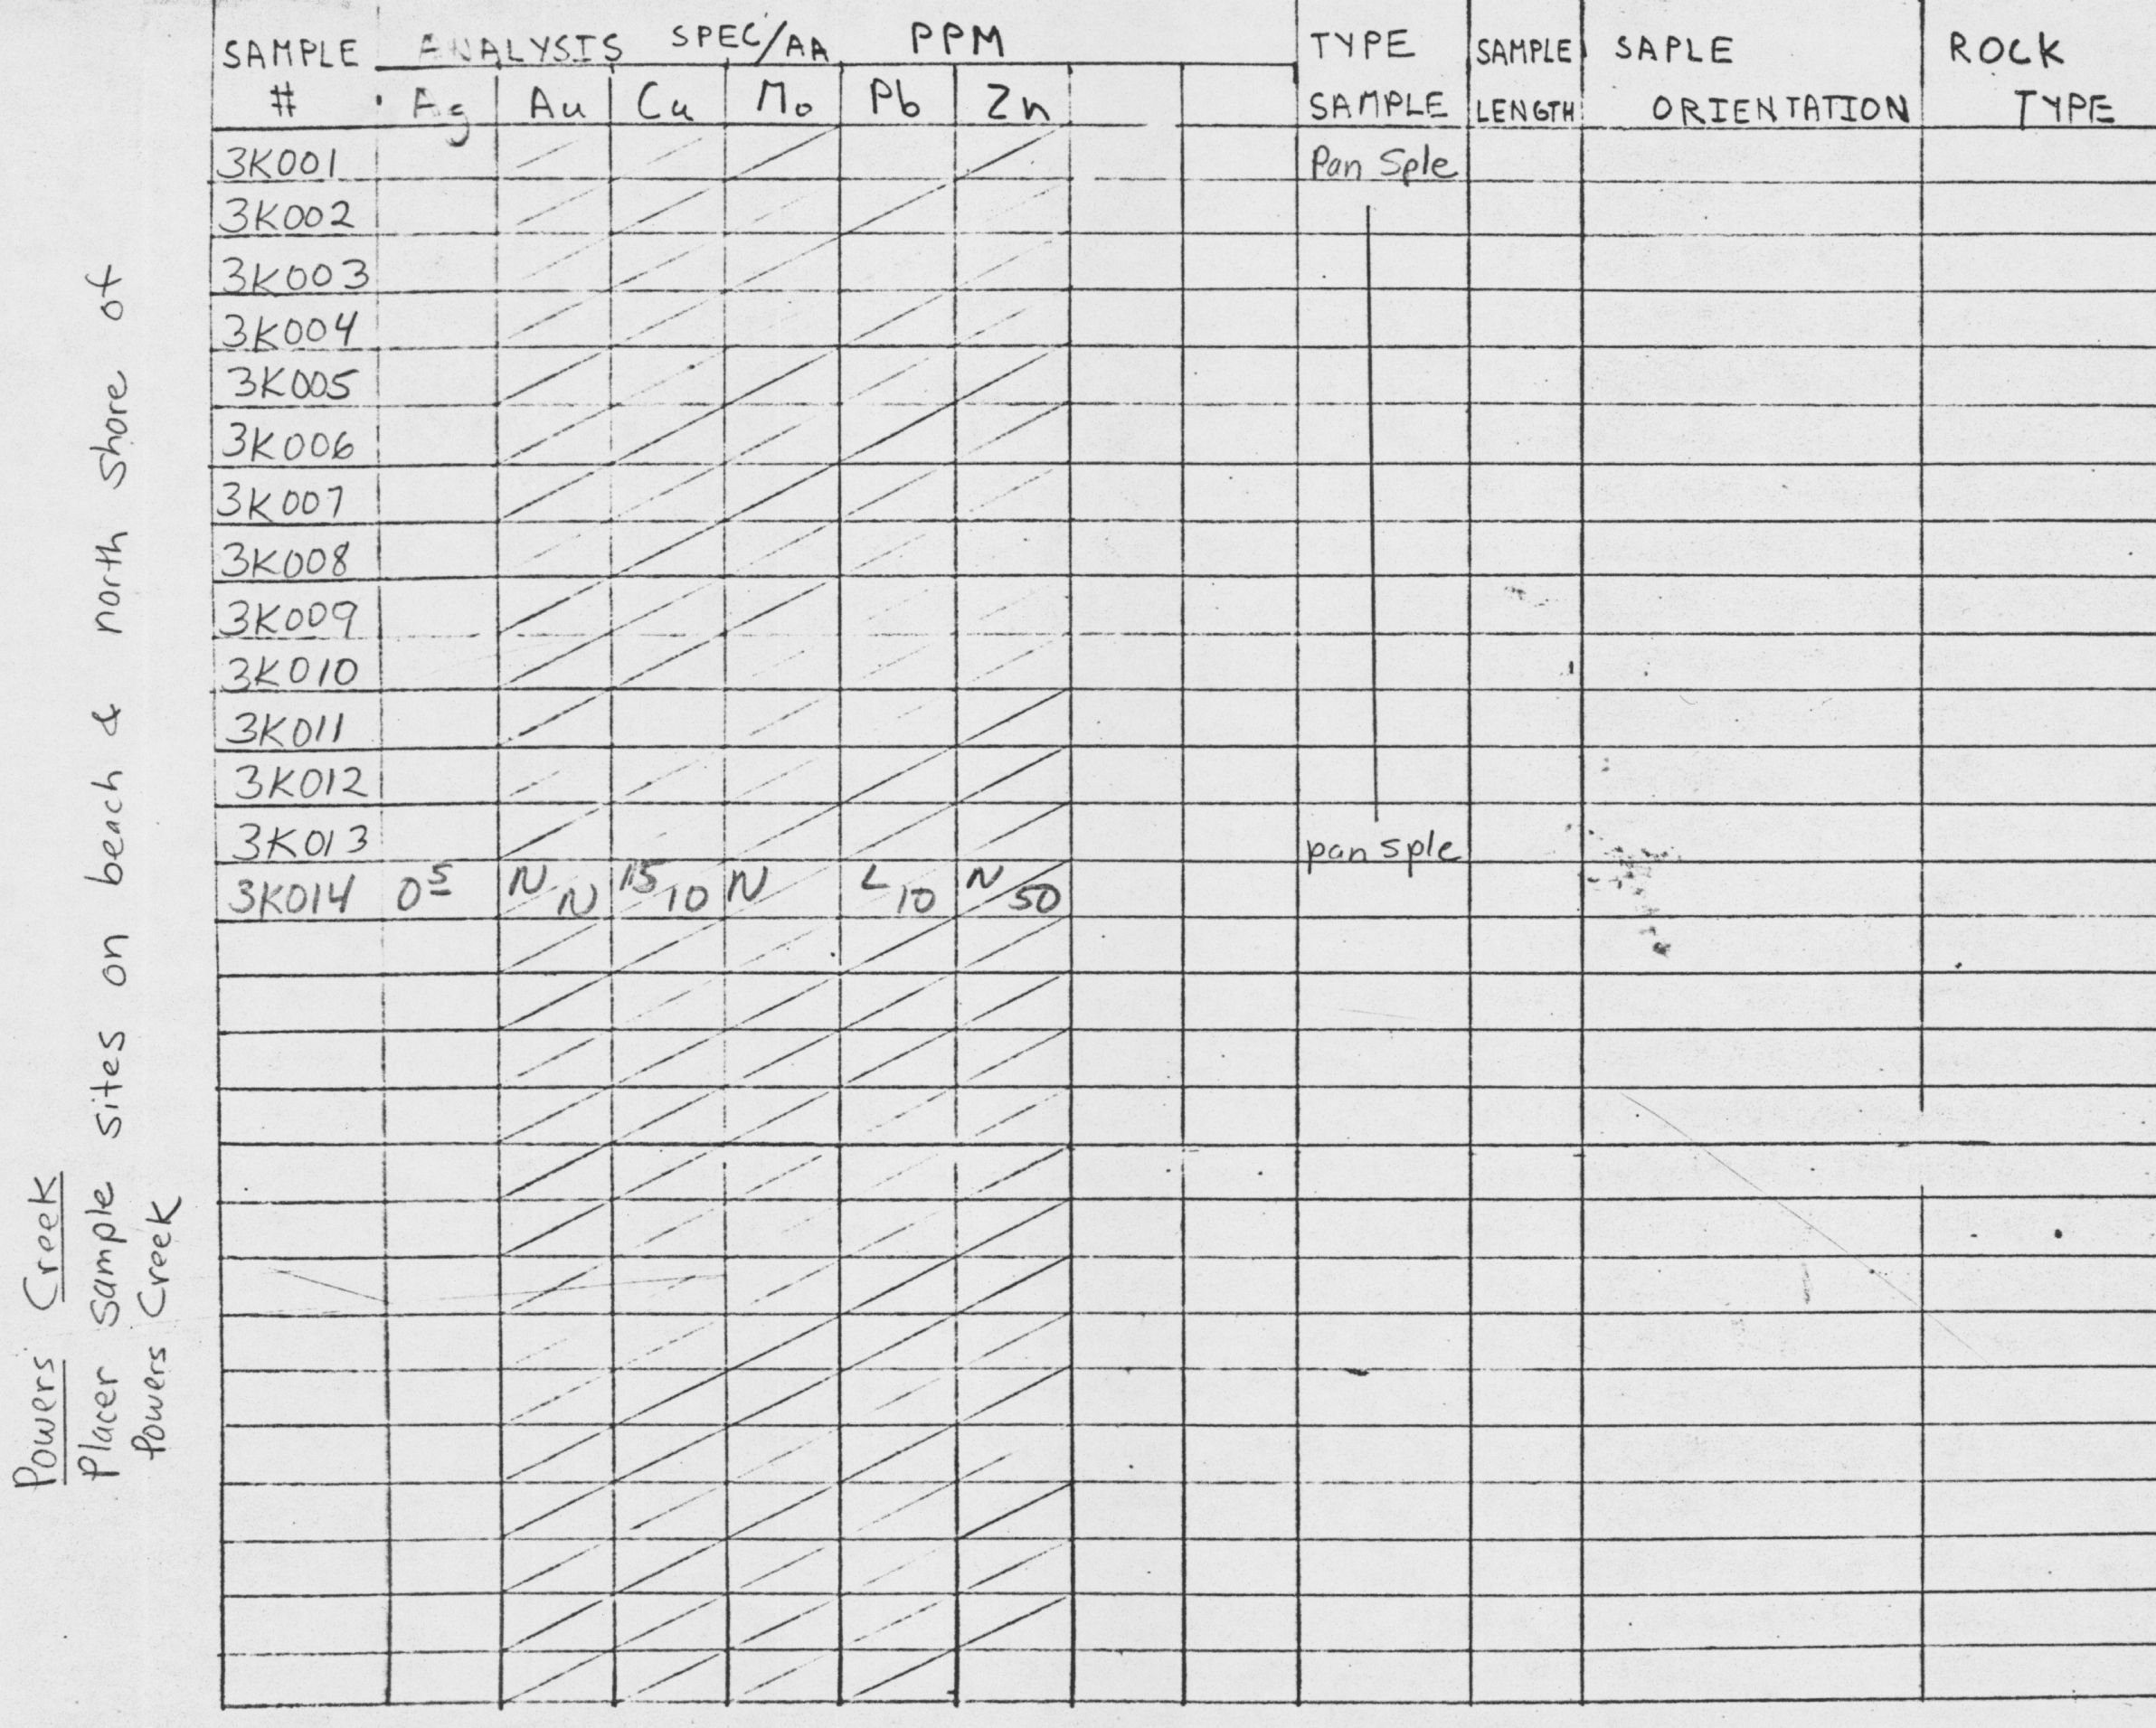 SAMPLE # ANALYSIS SPEC/AA PPM TYPE SAMPLE SAMPLE LENGTH SAPLE ORIENTATION ROCK TYPE
Ag Au Cu Mo Pb Zn
3K001 Pan Sple
3K002
3K003
3K004
3K005
3K006
3K007
3K008
3K009
3K010
3K011
3K012
3K013 pan sple
3K014 0⁵ N N 15 10 N L 10 N 50
Powers Creek
Placer sample sites on beach & north shore of
Powers Creek